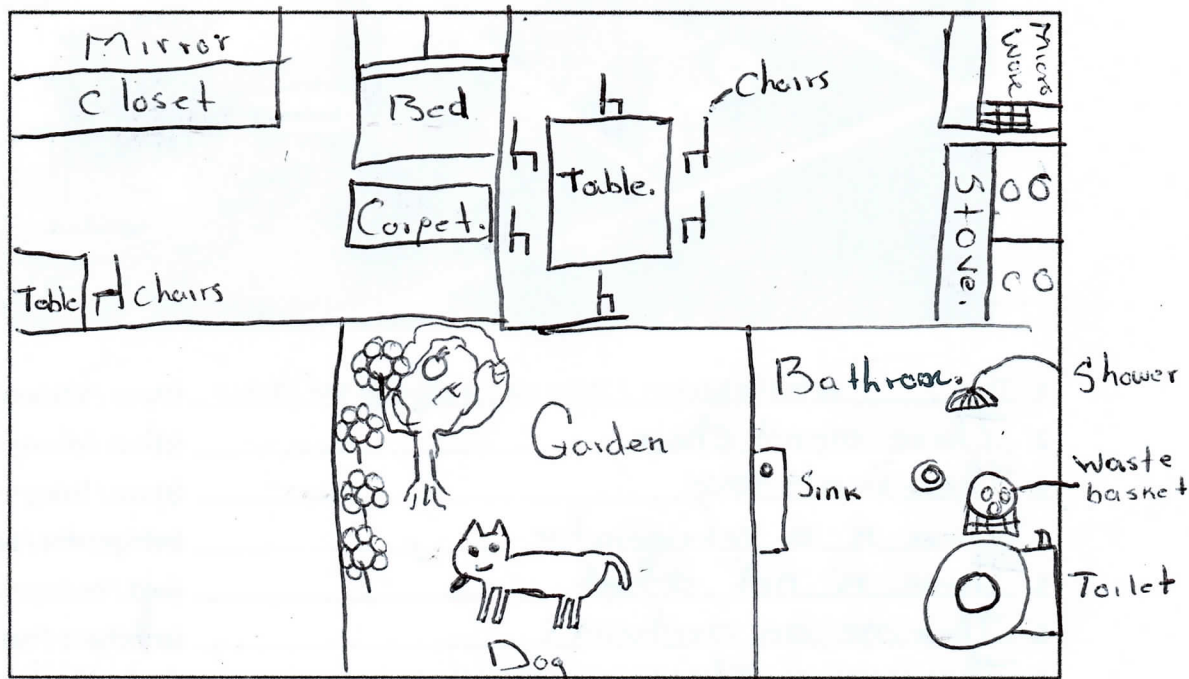 Mirror
Closet
Bed
Carpet.
Table
Chairs
Table.
Chairs
Micro
Wave
Stove.
Garden
Dog
Bathroom.
Sink
Shower
Waste
basket
Toilet